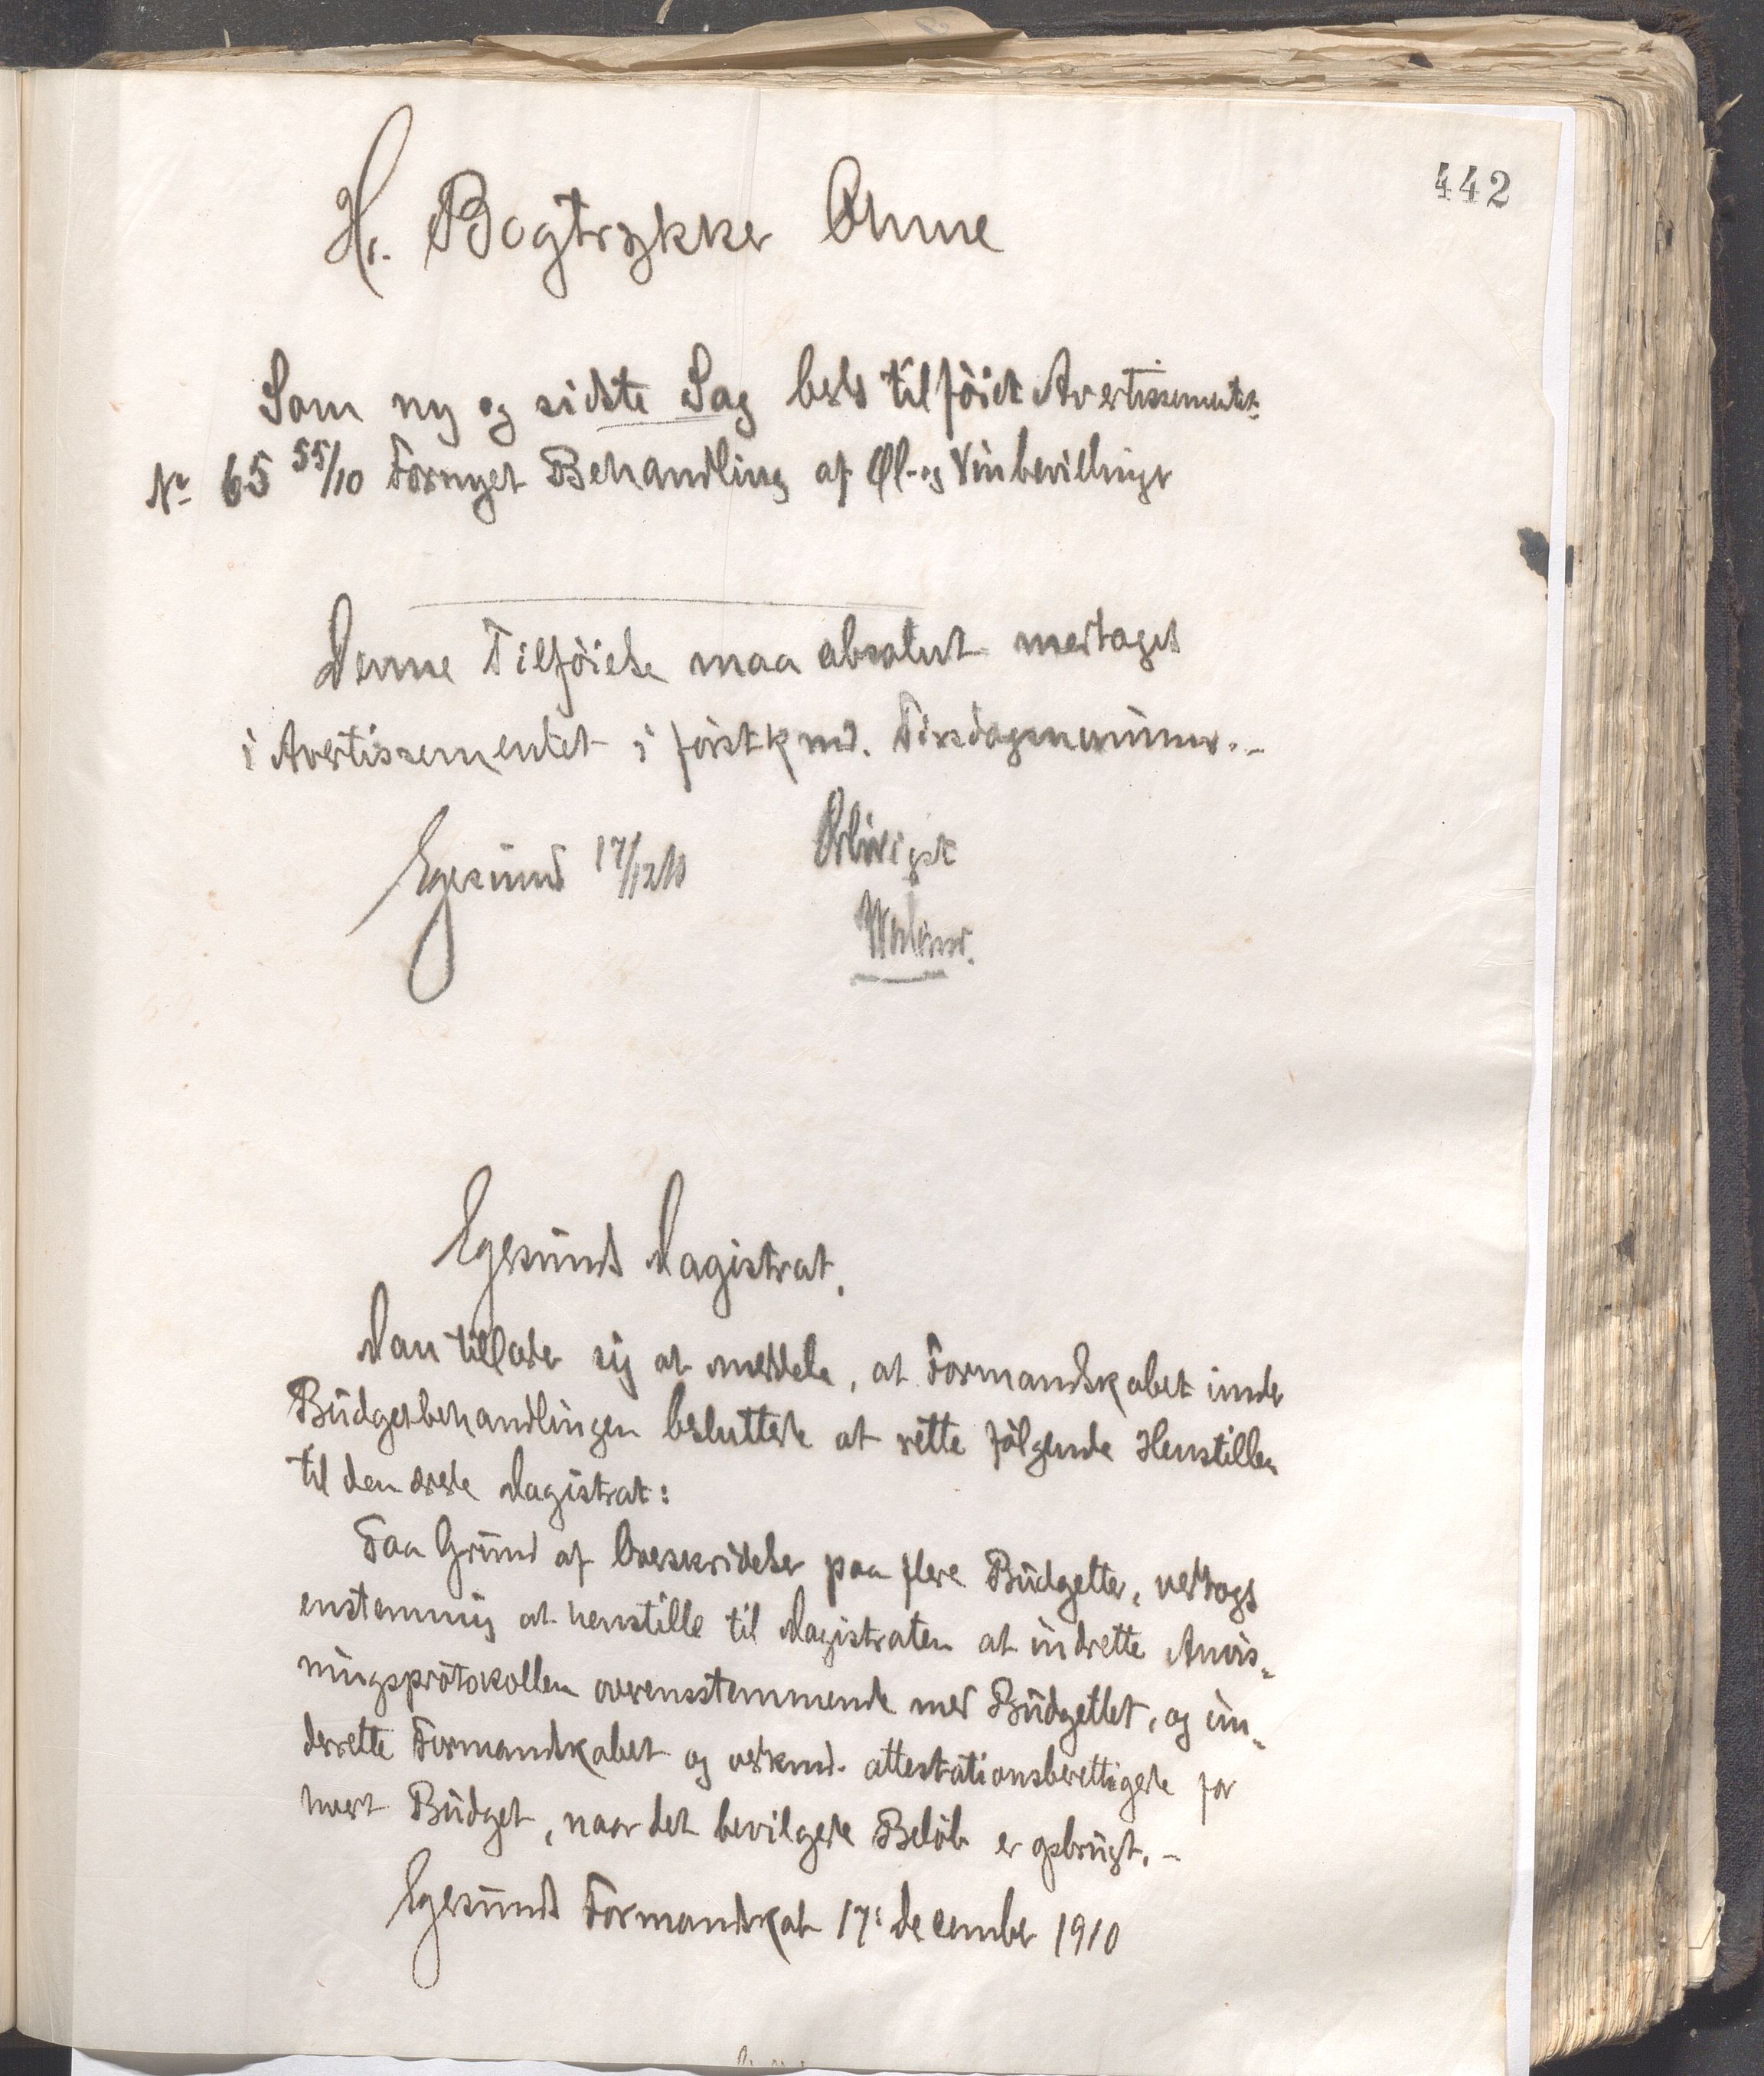 442
Hr. Bogtrykker
Som ny og sidste Sag bedes tilføiet Avertissementet
No 65 55/10 Fornyet Behandling af Øl- og Vinbevillinger
Denne Tilføielse maa absolut medtages
i Avertissementet i førstkmd. Tirsdagsnummer.-
Egersund 17/12 10 Ærbødigst
Egersunds Magistrat.
Man tillader sig at meddele, at Formandskabet under
Budgetbehandlingen besluttede at rette følgende Henstillen
til den ærede Magistrat:
Paa Grund af Overskridelser paa flere Budgetter, vedtoges
enstemmig at henstille til Magistraten at indrette Anvis-
ningsprotokollen overensstemmende med Budgettet, og un-
derrette Formandskabet og vedkmd. attestationsberettigede for
hvert Budget, naar det bevilgede Beløb er opbrugt.-
Egersunds Formandskab 17: December 1910